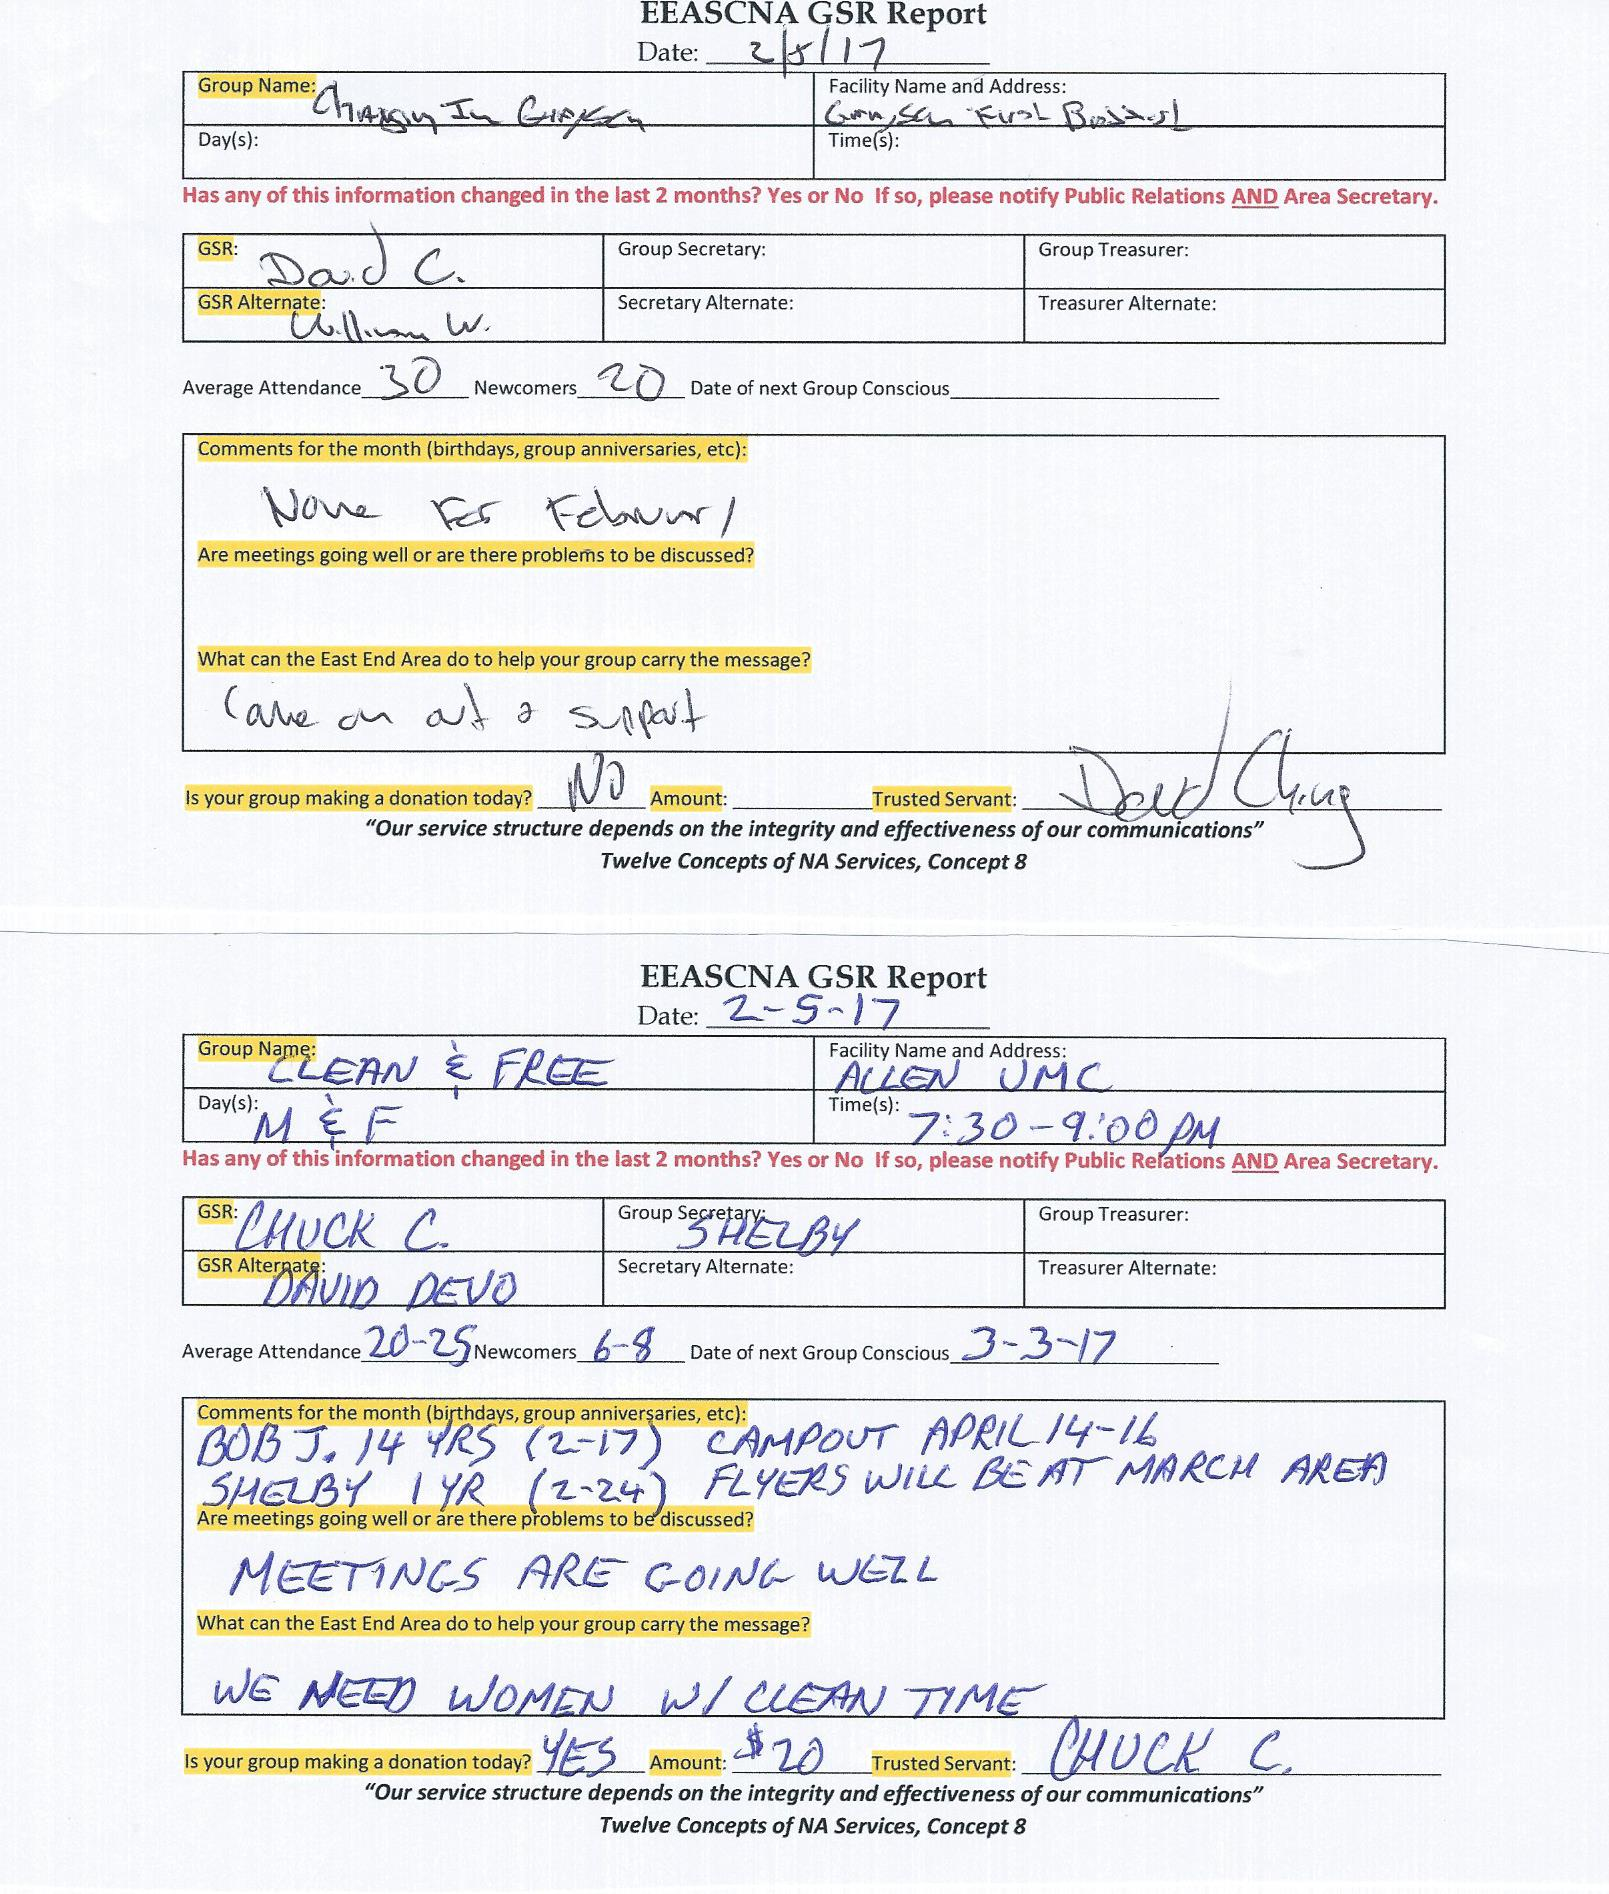 EEASCNA GSR Report
Date: 2/5/17
Group Name: Changing In Grayson
Facility Name and Address: Grayson First Baptist
Day(s):
Time(s):
Has any of this information changed in the last 2 months? Yes or No If so, please notify Public Relations AND Area Secretary.
GSR: David C.
Group Secretary:
Group Treasurer:
GSR Alternate: William W.
Secretary Alternate:
Treasurer Alternate:
Average Attendance 30 Newcomers 20 Date of next Group Conscious
Comments for the month (birthdays, group anniversaries, etc):
None For February
Are meetings going well or are there problems to be discussed?
What can the East End Area do to help your group carry the message?
Come on out & support
Is your group making a donation today? NO Amount: Trusted Servant: David
“Our service structure depends on the integrity and effectiveness of our communications”
Twelve Concepts of NA Services, Concept 8
EEASCNA GSR Report
Date: 2-5-17
Group Name: CLEAN & FREE
Facility Name and Address: ALLEN UMC
Day(s): M & F
Time(s): 7:30-9:00 PM
Has any of this information changed in the last 2 months? Yes or No If so, please notify Public Relations AND Area Secretary.
GSR: CHUCK C.
Group Secretary: SHELBY
Group Treasurer:
GSR Alternate: DAVID DEVO
Secretary Alternate:
Treasurer Alternate:
Average Attendance 20-25 Newcomers 6-8 Date of next Group Conscious 3-3-17
Comments for the month (birthdays, group anniversaries, etc):
BOB J. 14 YRS (2-17) CAMPOUT APRIL 14-16
SHELBY 1 YR (2-24) FLYERS WILL BE AT MARCH AREA
Are meetings going well or are there problems to be discussed?
MEETINGS ARE GOING WELL
What can the East End Area do to help your group carry the message?
WE NEED WOMEN W/ CLEAN TIME
Is your group making a donation today? YES Amount: $20 Trusted Servant: CHUCK C.
“Our service structure depends on the integrity and effectiveness of our communications”
Twelve Concepts of NA Services, Concept 8